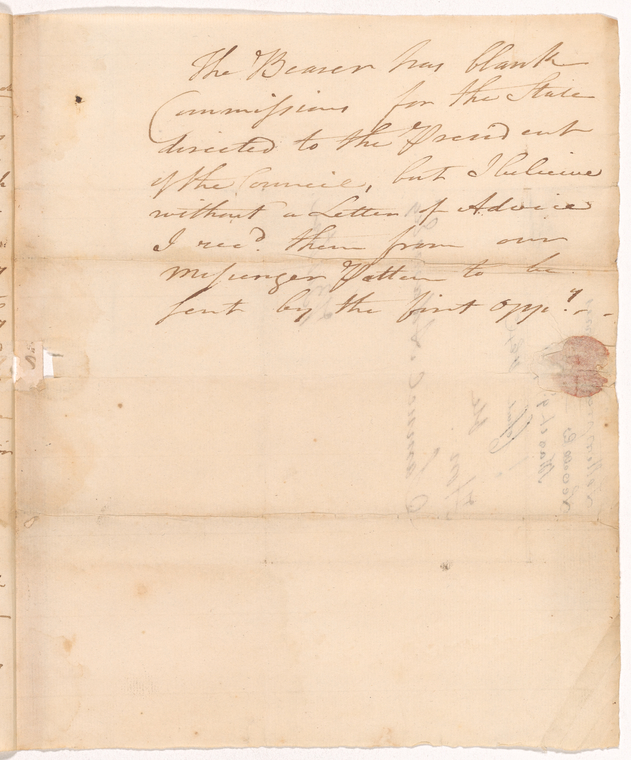 The Bearer has blank
Commissions for the State
directed to the President
of the Council, but I believe
without a Letter of Advice
I recd. them from our
messenger Patten to be
sent by the first oppy. - -